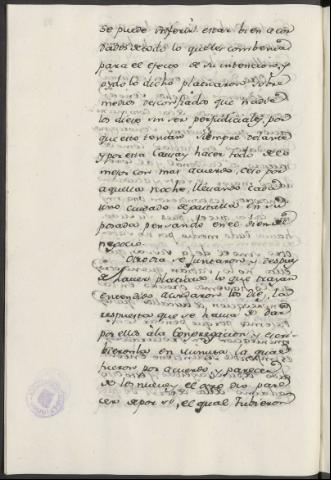 se puede inferir estar bien acon
dados de todo lo que les combenia
para el efeco de su intencion, y
oydo lo dicho platicaron sobre
medios desconfiados que nadie
los diese sin ser perjudiciales, por
que esto tenian siempre delante
y por esta causa, y hacer todo de lo
mejor con mas acuerdo, ceso por
aquella noche, llevando cada
uno cuidado de pasalla en su
posada pensando en el dicho
negocio.
Otro dia se juntaron, y despues
de haver platicado lo que trayan
entendido acordaron los diez, la
respuesta que se havia de dar
por ellos a la Congregacion, y escri
bieronla en summa la qual
fue
por acuerdo, y parecer
de los nueve, y el otro dio pare
cer de por si, el qual tubieron